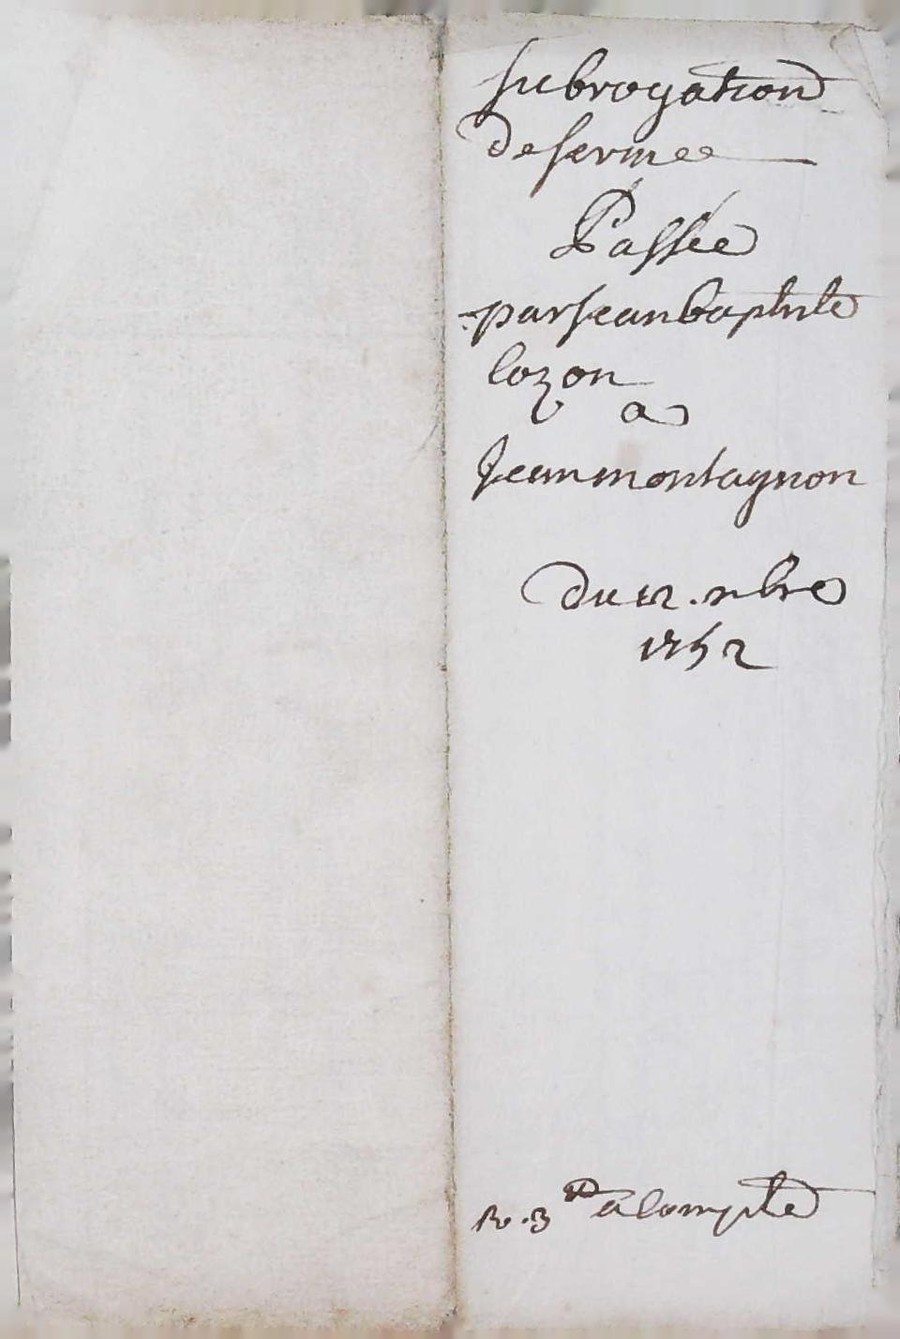 subrogation
de fermee
Passée
par jean baptiste
lozon
a
jean montagnon
du 12. nbre
1752
R. 3 a compte